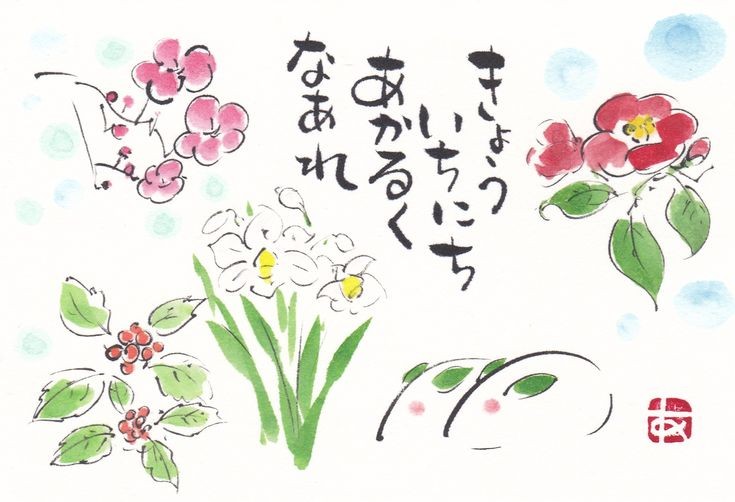 きょう
いちにち
あかるく
なあれ
あ